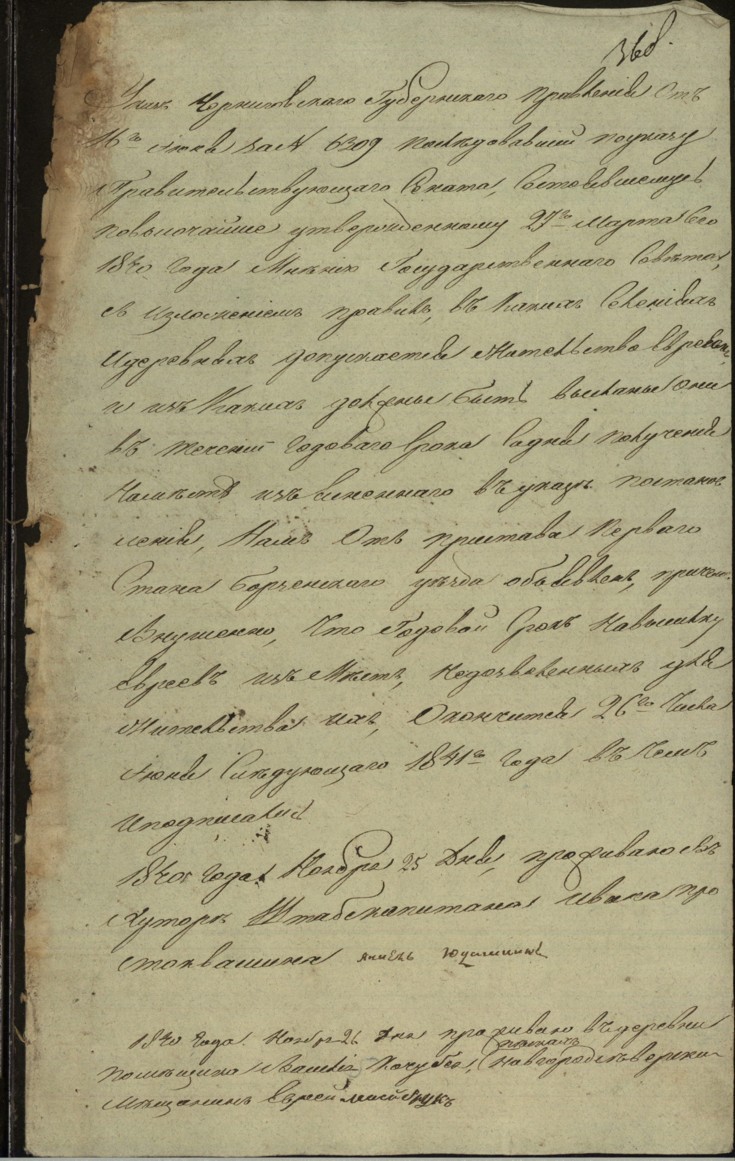 368.
Указъ Черниговскаго Губернскаго Правленія Отъ
16го Іюня за N 6309 Последовавшій поуказу
Правительствующаго Сената, Состоявшемусь
повысочайше утвержденному 27го Марта сего
1840 года Мненію Государственнаго Совета,
съ изложеніемъ правилъ, въ Какихъ Селеніяхъ
идеревняхъ допускается Жительство Евреевъ,
и изъ Какихъ должны быть высланы они
въ теченіи годоваго Срока Содня полученія
наместе изъясненнаго въ указе постанов
ленія, Намъ Отъ пристава Перваго
Стана Борзенскаго уезда объявленъ, причемъ
Внушенно, Что Годовой Срокъ Навысылку
Евреевъ изъ Местъ, недозволенныхъ для
Жительства ихъ, Окончится 26го Числа
Іюня Следующаго 1841го года въ Чемъ
иподписался
1840 года Ноября 25 Дня, проживаю въ
Хуторе Штабскапитана Ивана про
стоквашина
1840 года Ноября 26 Дня проживаю въ деревни
помещика Василія Кочубея, Новгородсеверски
Мещанинъ Еврей